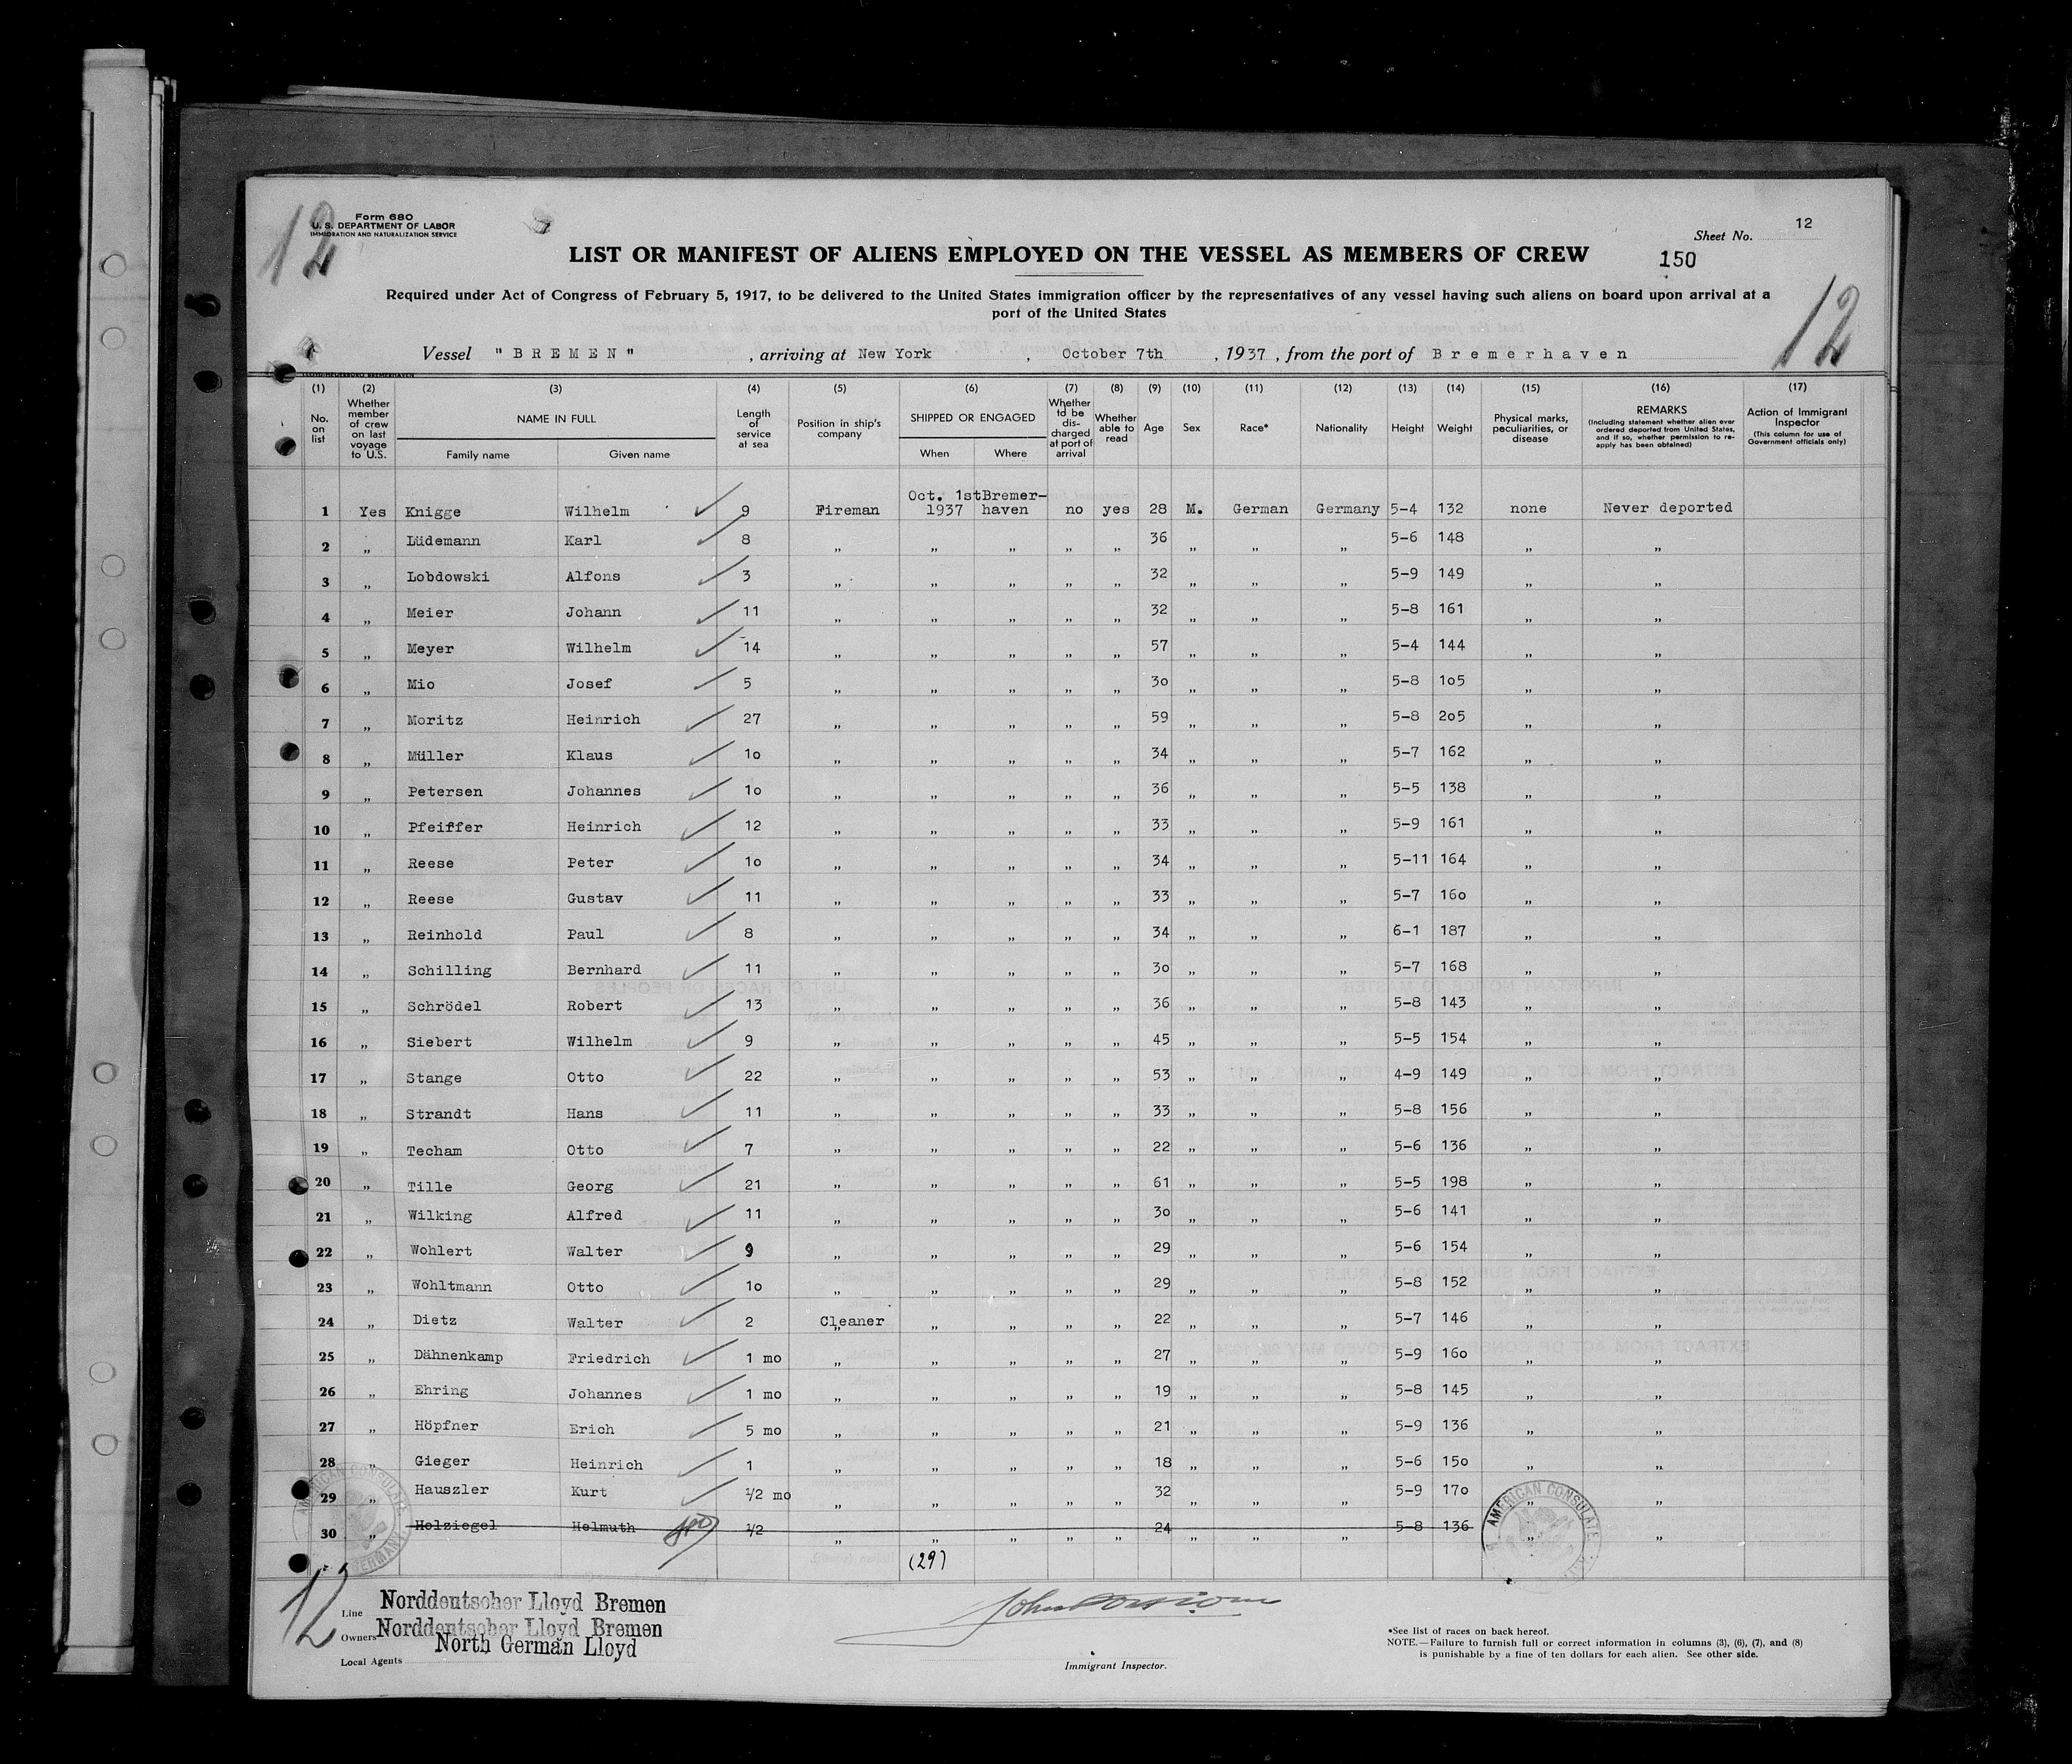 12
Form 680
U. S. DEPARTMENT OF LABOR
IMMIGRATION AND NATURALIZATION SERVICE
Sheet No. 12
LIST OR MANIFEST OF ALIENS EMPLOYED ON THE VESSEL AS MEMBERS OF CREW
150
Required under Act of Congress of February 5, 1917, to be delivered to the United States immigration officer by the representatives of any vessel having such aliens on board upon arrival at a
port of the United States
12
Vessel "BREMEN", arriving at New York, October 7th, 1937, from the port of Bremerhaven
(1) (2) (3) (4) (5) (6) (7) (8) (9) (10) (11) (12) (13) (14) (15) (16) (17)
No. on list
Whether member of crew on last voyage to U.S.
NAME IN FULL
Family name
Given name
Length of service at sea
Position in ship's company
SHIPPED OR ENGAGED
When
Where
Whether to be discharged at port of arrival
Whether able to read
Age
Sex
Race*
Nationality
Height
Weight
Physical marks, peculiarities, or disease
REMARKS
(Including statement whether alien ever ordered deported from United States, and if so, whether permission to reapply has been obtained)
Action of Immigrant Inspector
(This column for use of Government officials only)
1 Yes Knigge Wilhelm 9 Fireman Oct. 1st 1937 Bremer-haven no yes 28 M. German Germany 5-4 132 none Never deported
2 „ Lüdemann Karl 8 „ „ „ „ „ 36 „ „ „ 5-6 148 „ „
3 „ Lobdowski Alfons 3 „ „ „ „ „ 32 „ „ „ 5-9 149 „ „
4 „ Meier Johann 11 „ „ „ „ „ 32 „ „ „ 5-8 161 „ „
5 „ Meyer Wilhelm 14 „ „ „ „ „ 57 „ „ „ 5-4 144 „ „
6 „ Mio Josef 5 „ „ „ „ „ 30 „ „ „ 5-8 105 „ „
7 „ Moritz Heinrich 27 „ „ „ „ „ 59 „ „ „ 5-8 205 „ „
8 „ Müller Klaus 10 „ „ „ „ „ 34 „ „ „ 5-7 162 „ „
9 „ Petersen Johannes 10 „ „ „ „ „ 36 „ „ „ 5-5 138 „ „
10 „ Pfeiffer Heinrich 12 „ „ „ „ „ 33 „ „ „ 5-9 161 „ „
11 „ Reese Peter 10 „ „ „ „ „ 34 „ „ „ 5-11 164 „ „
12 „ Reese Gustav 11 „ „ „ „ „ 33 „ „ „ 5-7 160 „ „
13 „ Reinhold Paul 8 „ „ „ „ „ 34 „ „ „ 6-1 187 „ „
14 „ Schilling Bernhard 11 „ „ „ „ „ 30 „ „ „ 5-7 168 „ „
15 „ Schrödel Robert 13 „ „ „ „ „ 36 „ „ „ 5-8 143 „ „
16 „ Siebert Wilhelm 9 „ „ „ „ „ 45 „ „ „ 5-5 154 „ „
17 „ Stange Otto 22 „ „ „ „ „ 53 „ „ „ 4-9 149 „ „
18 „ Strandt Hans 11 „ „ „ „ „ 33 „ „ „ 5-8 156 „ „
19 „ Techam Otto 7 „ „ „ „ „ 22 „ „ „ 5-6 136 „ „
20 „ Tille Georg 21 „ „ „ „ „ 61 „ „ „ 5-5 198 „ „
21 „ Wilking Alfred 11 „ „ „ „ „ 30 „ „ „ 5-6 141 „ „
22 „ Wohlert Walter 9 „ „ „ „ „ 29 „ „ „ 5-6 154 „ „
23 „ Wohltmann Otto 10 „ „ „ „ „ 29 „ „ „ 5-8 152 „ „
24 „ Dietz Walter 2 Cleaner „ „ „ „ 22 „ „ „ 5-7 146 „ „
25 „ Dähnenkamp Friedrich 1 mo „ „ „ „ „ 27 „ „ „ 5-9 160 „ „
26 „ Ehring Johannes 1 mo „ „ „ „ „ 19 „ „ „ 5-8 145 „ „
27 „ Höpfner Erich 5 mo „ „ „ „ „ 21 „ „ „ 5-9 136 „ „
28 „ Gieger Heinrich 1 „ „ „ „ „ 18 „ „ „ 5-6 150 „ „
29 „ Hauszler Kurt 1/2 mo „ „ „ „ „ 32 „ „ „ 5-9 170 „ „
30 „ Holziegel Helmuth 1/2 „ „ „ „ „ 24 „ „ „ 5-8 136 „ „
AMERICAN CONSULATE
AMERICAN CONSULATE
(29)
12
Line Norddeutscher Lloyd Bremen
Owners Norddeutscher Lloyd Bremen
Local Agents North German Lloyd
Immigrant Inspector.
*See list of races on back hereof.
NOTE.—Failure to furnish full or correct information in columns (3), (6), (7), and (8)
is punishable by a fine of ten dollars for each alien. See other side.